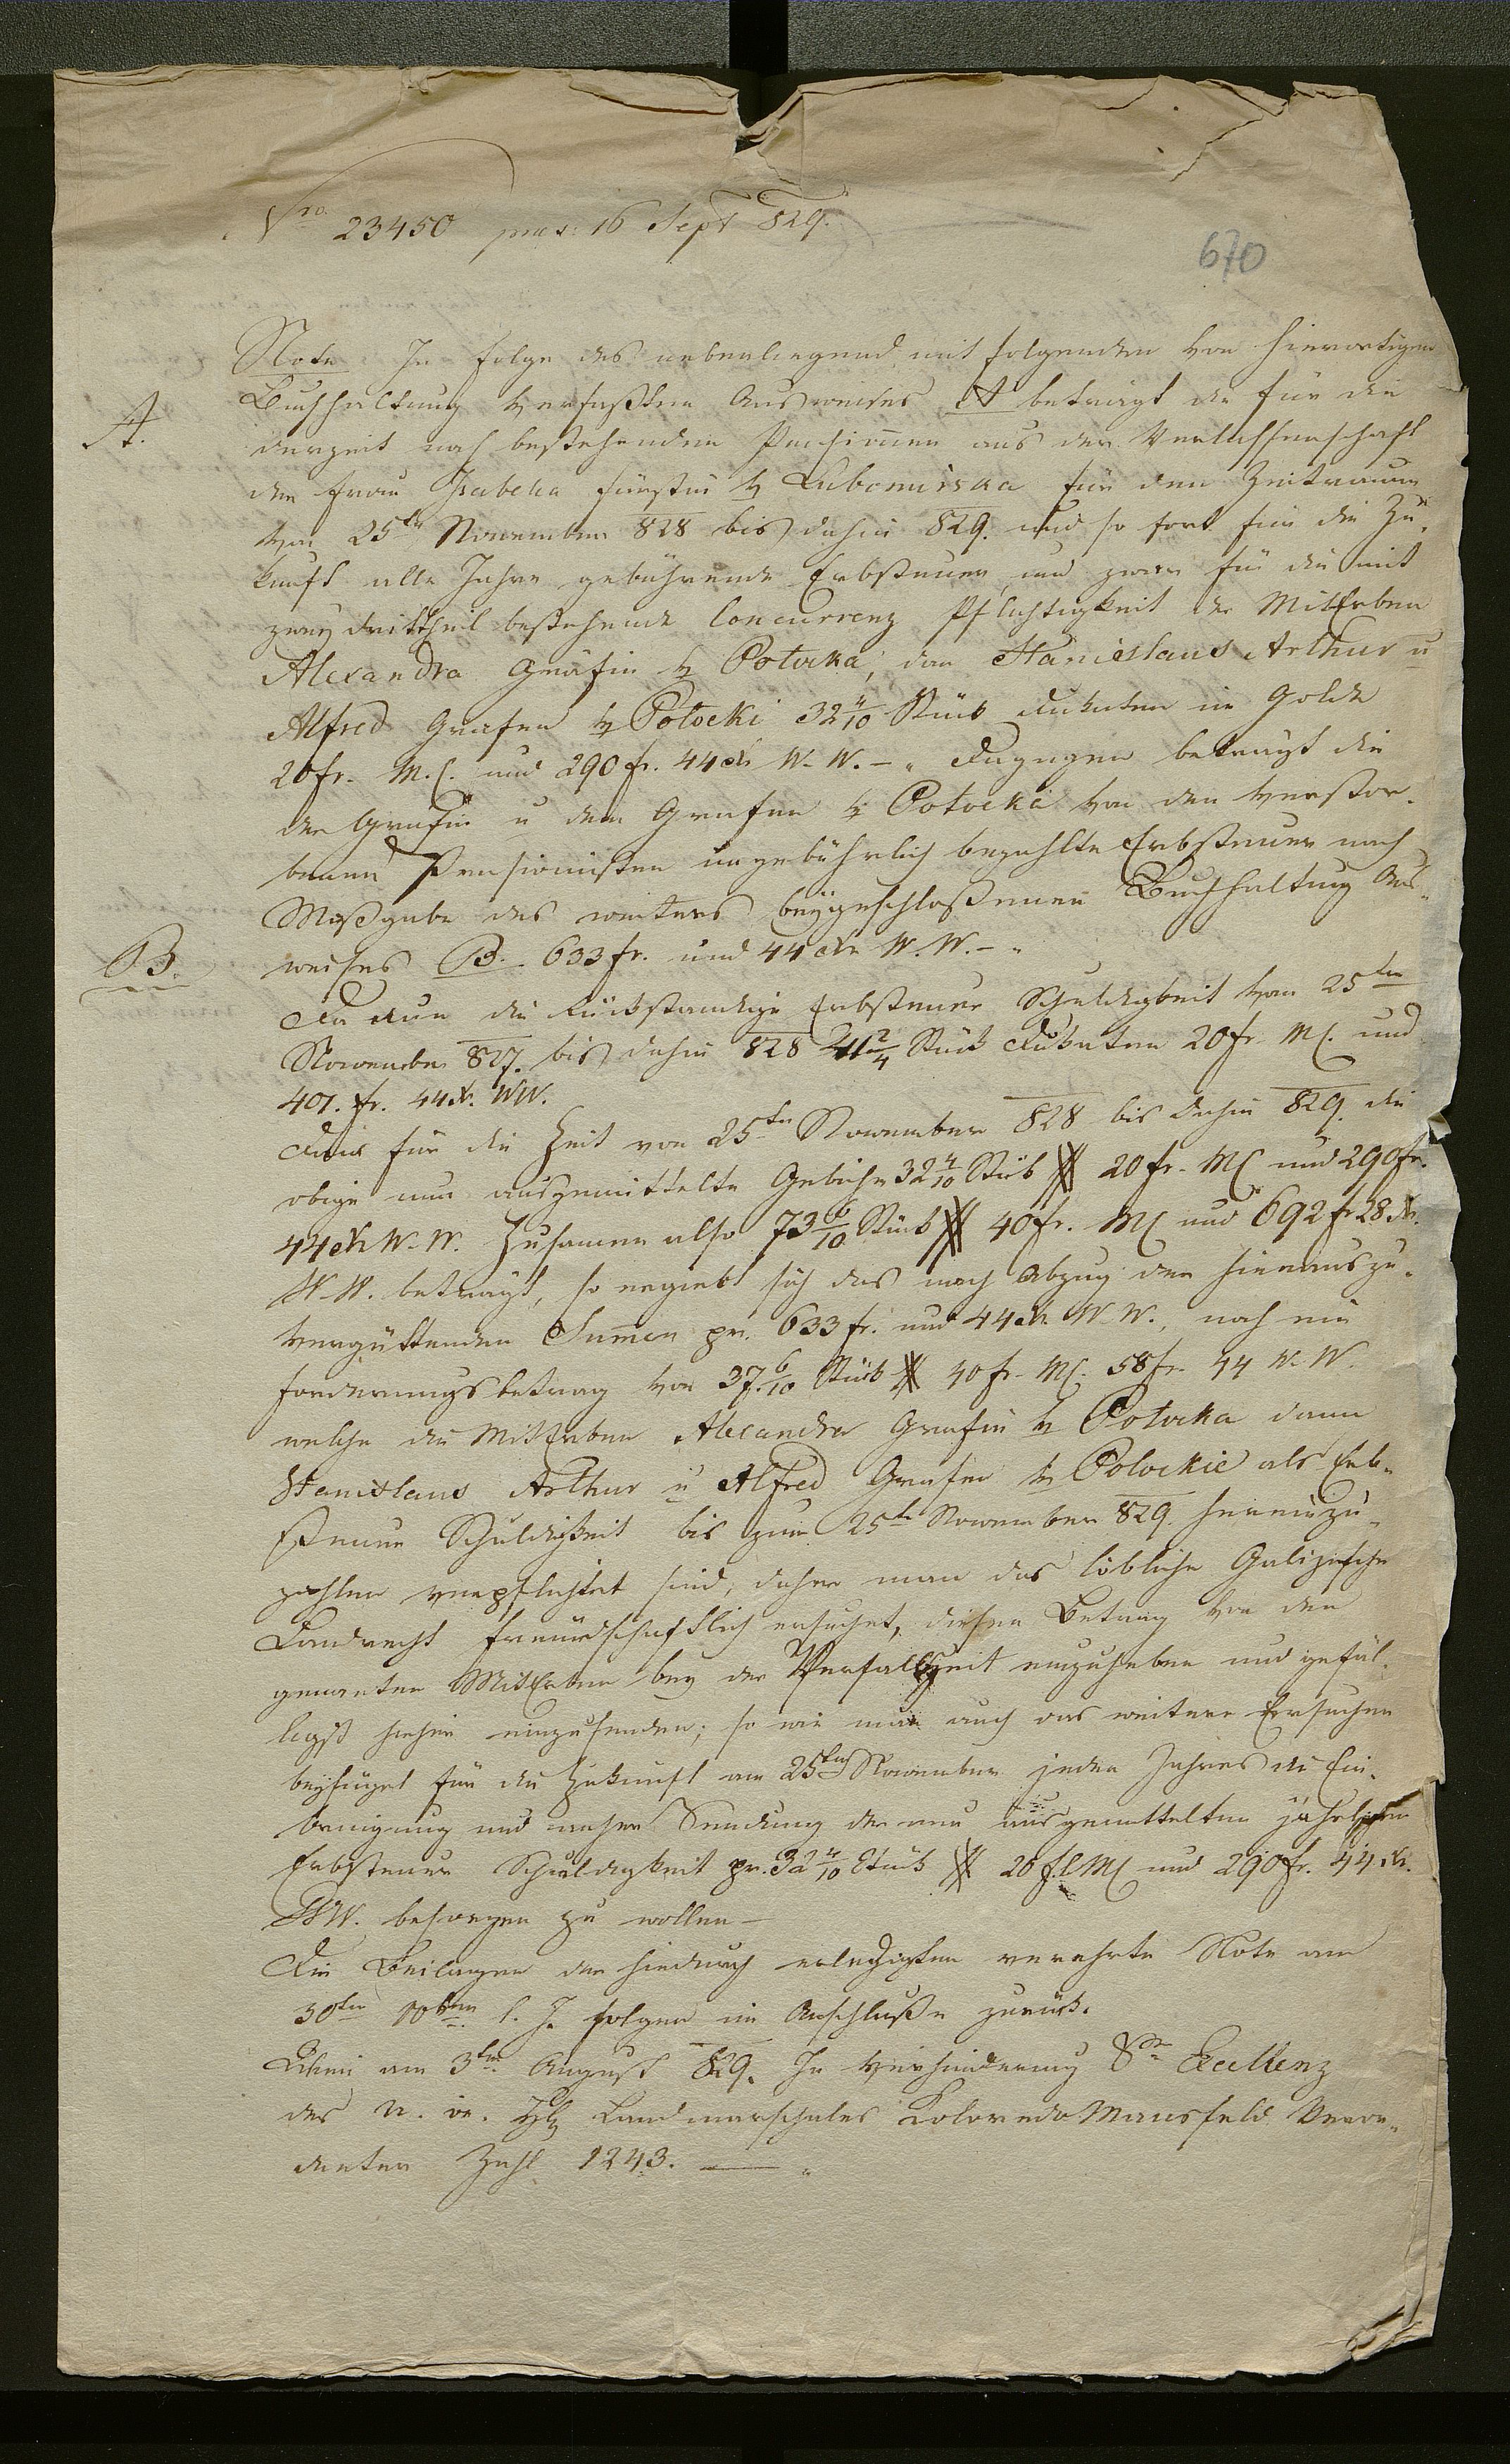 Nro. 23450 praes: 16 Sept 829.
670
Note In Folge des nebenliegend mit folgenden von hierortigen
A.
Buchhaltung verfaßten Ausweises A beträgt die für die
derzeit noch bestehenden Pensionen aus der Verlassenschaft
der Frau Isabella Fürstin v Lubomirska für den Zeitraum
von 25ten November 828 bis dahin 829. und so fort für die Zu-
kunft alle Jahre gebührende Erbsteuer, und zwar für die mit
zwey drittheil bestehende Concurrenz Pflichtigkeit der Miterben
Alexandra Gräfin v Potocka, dan Stanislaus Arthur u
Alfred Grafen v Potocki 32 4/10 Stück Dukaten in Golde
20 fr. M.C. und 290 fr. 44 xr W. W. – " Dagegen beträgt die
der Gräfin u den Grafen v Potocki von den verstor-
benen Pensionisten ungebührlich bezahlte Erbsteuer nach
Maßgabe des weiters beygeschloßenen Buchhaltung Aus-
B.
weises B. 633 fr. und 44 xr W. W. – "
Da nun die rückständige Erbsteuer Schuldigkeit vom 25ten
November 827. bis dahin 828 41 2/4 Stück Dukaten 20 fr. M.C. und
401. fr. 44 xr. WW.
Dan für die Zeit von 25ten November 828 bis dahin 829. die
obige nun ausgemittelte Gebühr 32 4/10 Stück # 20 fr. MC und 290 fr.
44 xr W. W. Zusamen also 73 6/10 Stück # 40 fr. MC und 692 fr 28 xr.
W. W. beträgt, so ergiebt sich das nach Abzug der hierauszu-
vergüttenden Sumen pr. 633 fr. und 44 xr. W. W., noch ein
Forderungsbetrag von 37. 6/10 Stück # 40 fr. MC. 58 fr. 44 W. W.
welche die Miterben Alexandra Grafin v Potocka dann
Stanislaus Arthur u Alfred Grafen v Potockie als Erb-
steuer Schuldigkeit bis zum 25ten November 829. hereinzu-
zahlen verpflichtet sind, daher man das löbliche Galizische
Landrecht freundschaftlich ersuchet, diesen Betrag von den
genanten Miterben bey der Verfallzeit einzuheben und gefäl-
ligst hieher einzusenden; so wie man auch das weitere Ersuchen
beyfüget für die Zukunft am 25ten November jeden Jahres die Ein-
bringung und anher Sendung der neu ausgemittelten jährlichen
Erbsteuer Schuldigkeit pr. 32 4/10 Stück # 20 f. CMC und 290 fr. 44 xr.
WW. besorgen zu wollen –
Die Beilagen der hiedurch erledigten verehrte Note am
30ten 10ber l. J. folgen im Anschluße zurück.
Wien am 3ten August 829. In Verhinderung Sr Excellenz
des n. oe. H Landmarschales Koloredo Mansfeld Veror-
dneter Zahl 1243. — "